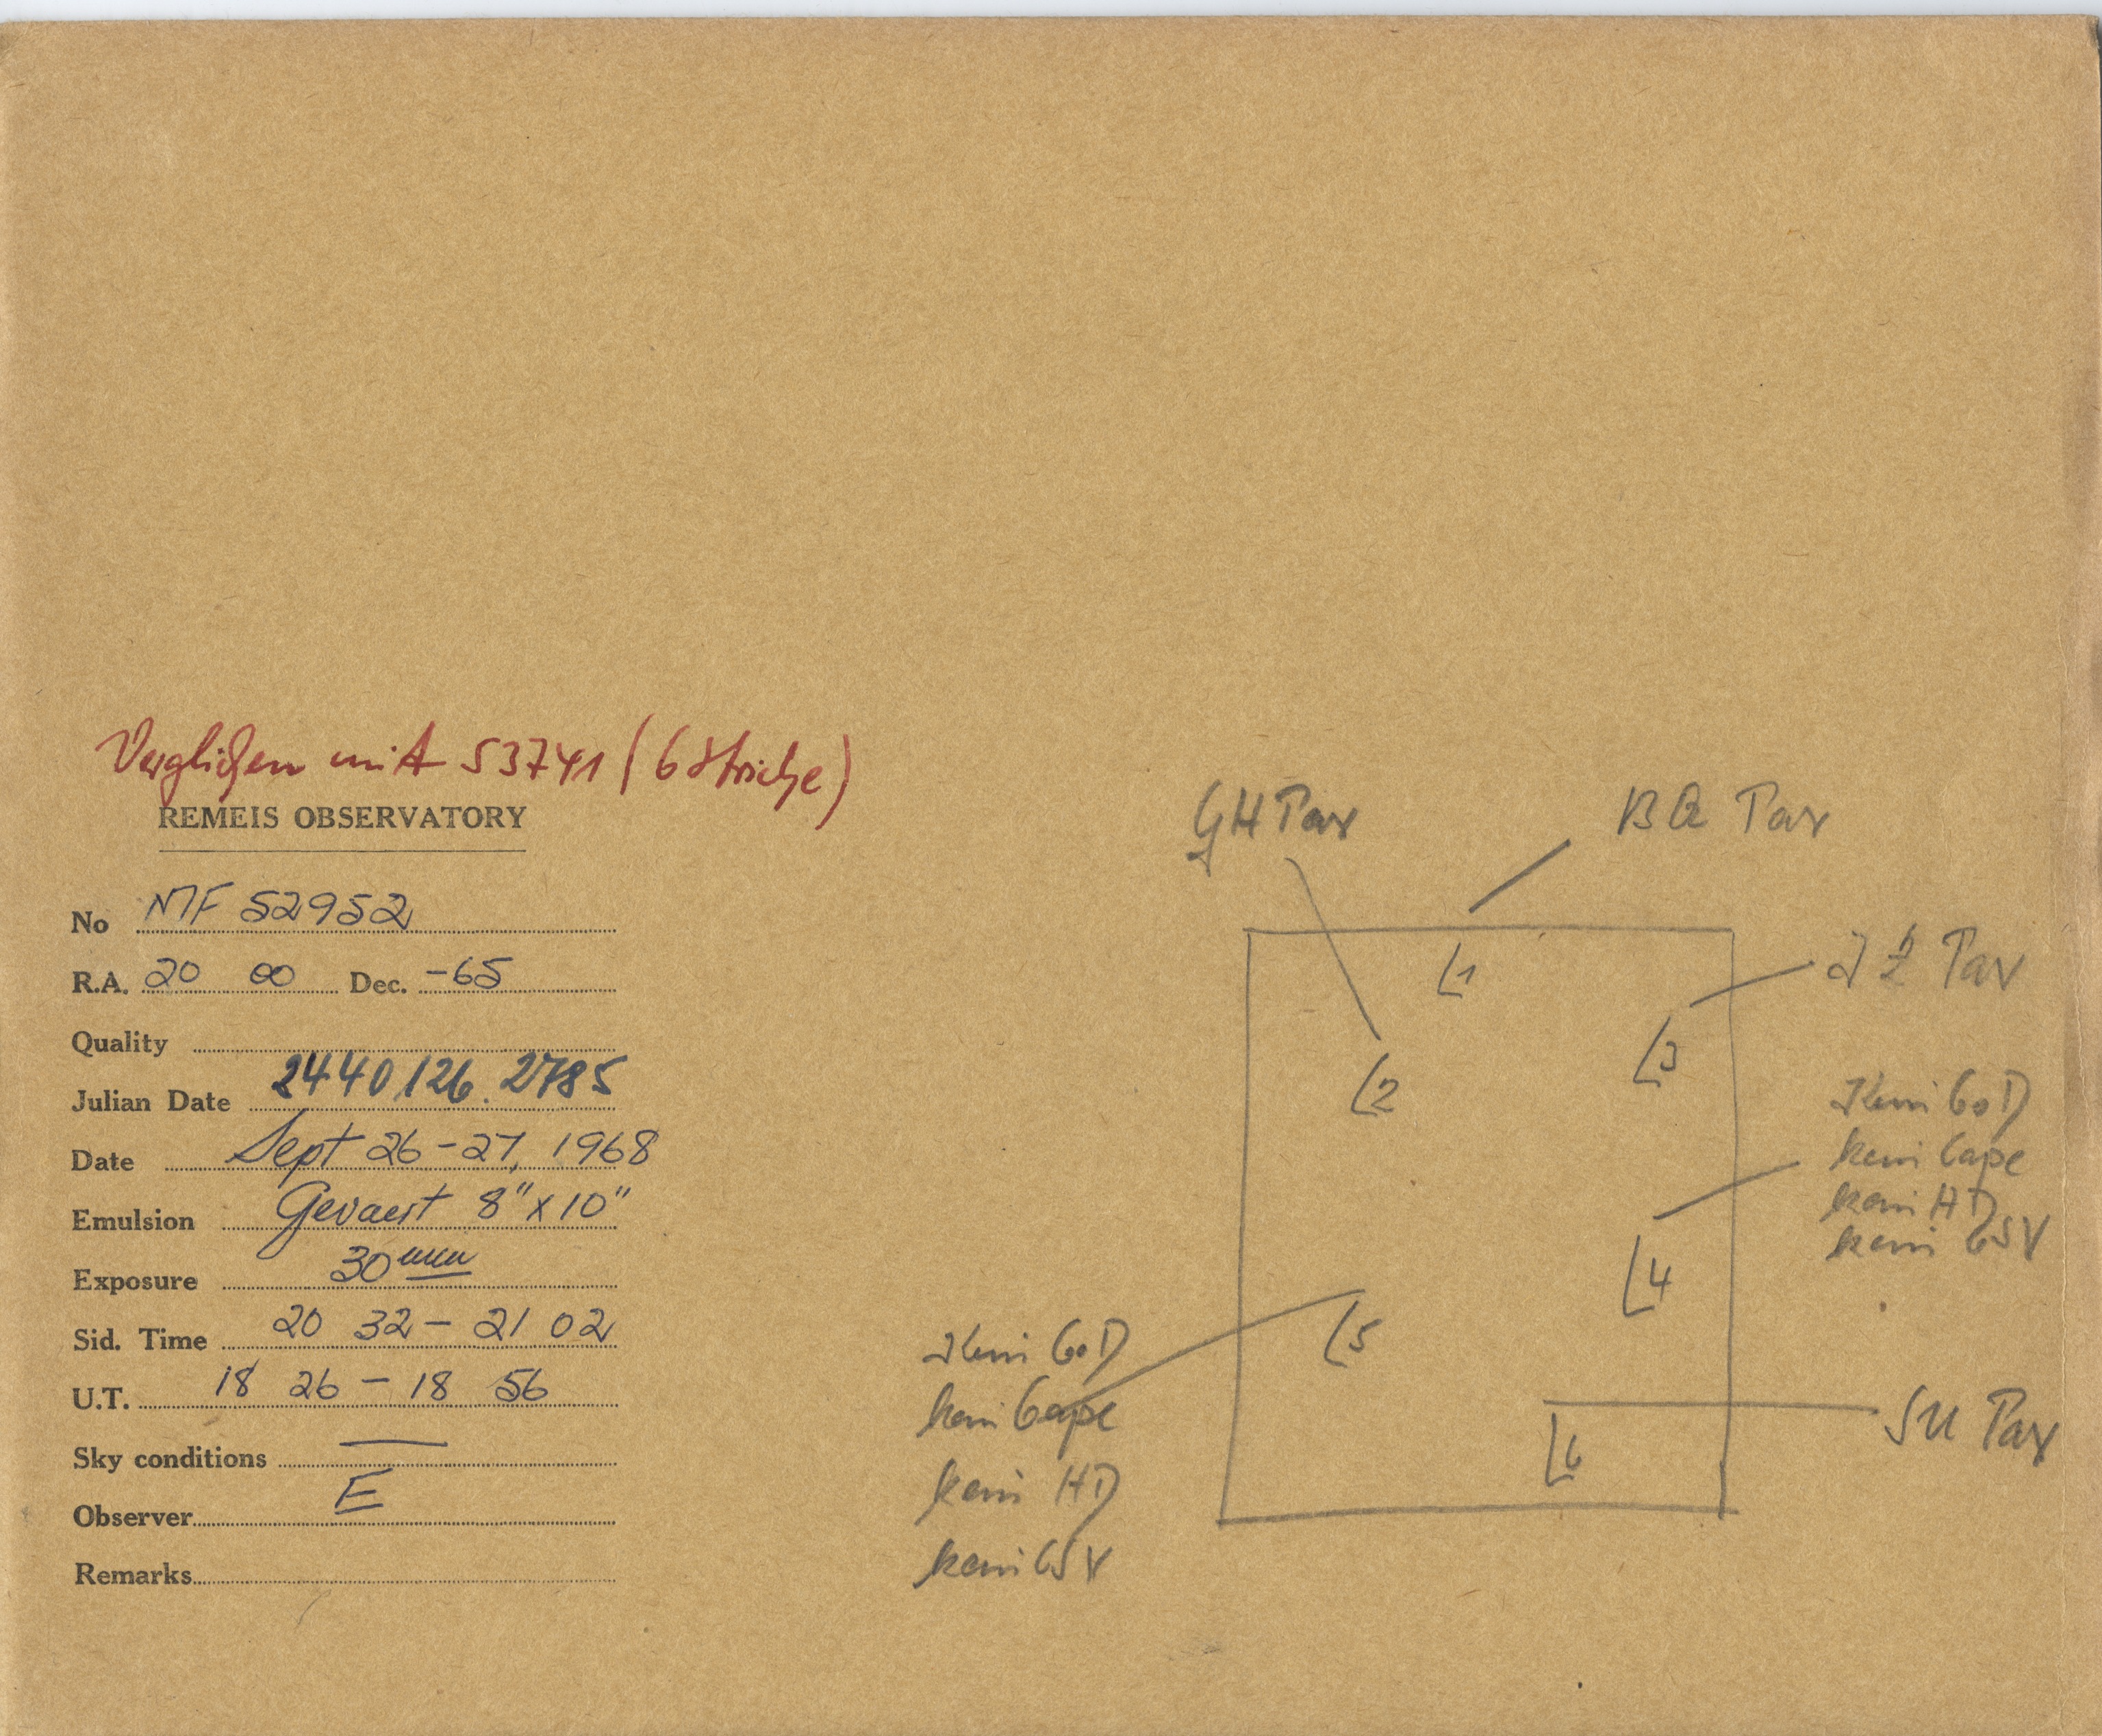 Verglichen mit 53741 (6 Striche)
REMEIS OBSERVATORY
No MF 52952
R.A. 20 00 Dec. -65
Quality
Julian Date 2440126.2785
Date Sept 26-27, 1968
Emulsion Gevaert 8" x 10"
Exposure 30 min
Sid. Time 20 32 - 21 02
U.T. 18 26 - 18 56
Sky conditions —
Observer E
Remarks
GH Pav
BQ Pav
Pav
1
2
3
4
5
6
Kein CoD
kein Cape
kein HD
kein CSV
Kein CoD
kein Cape
kein HD
kein CSV
SU Pav